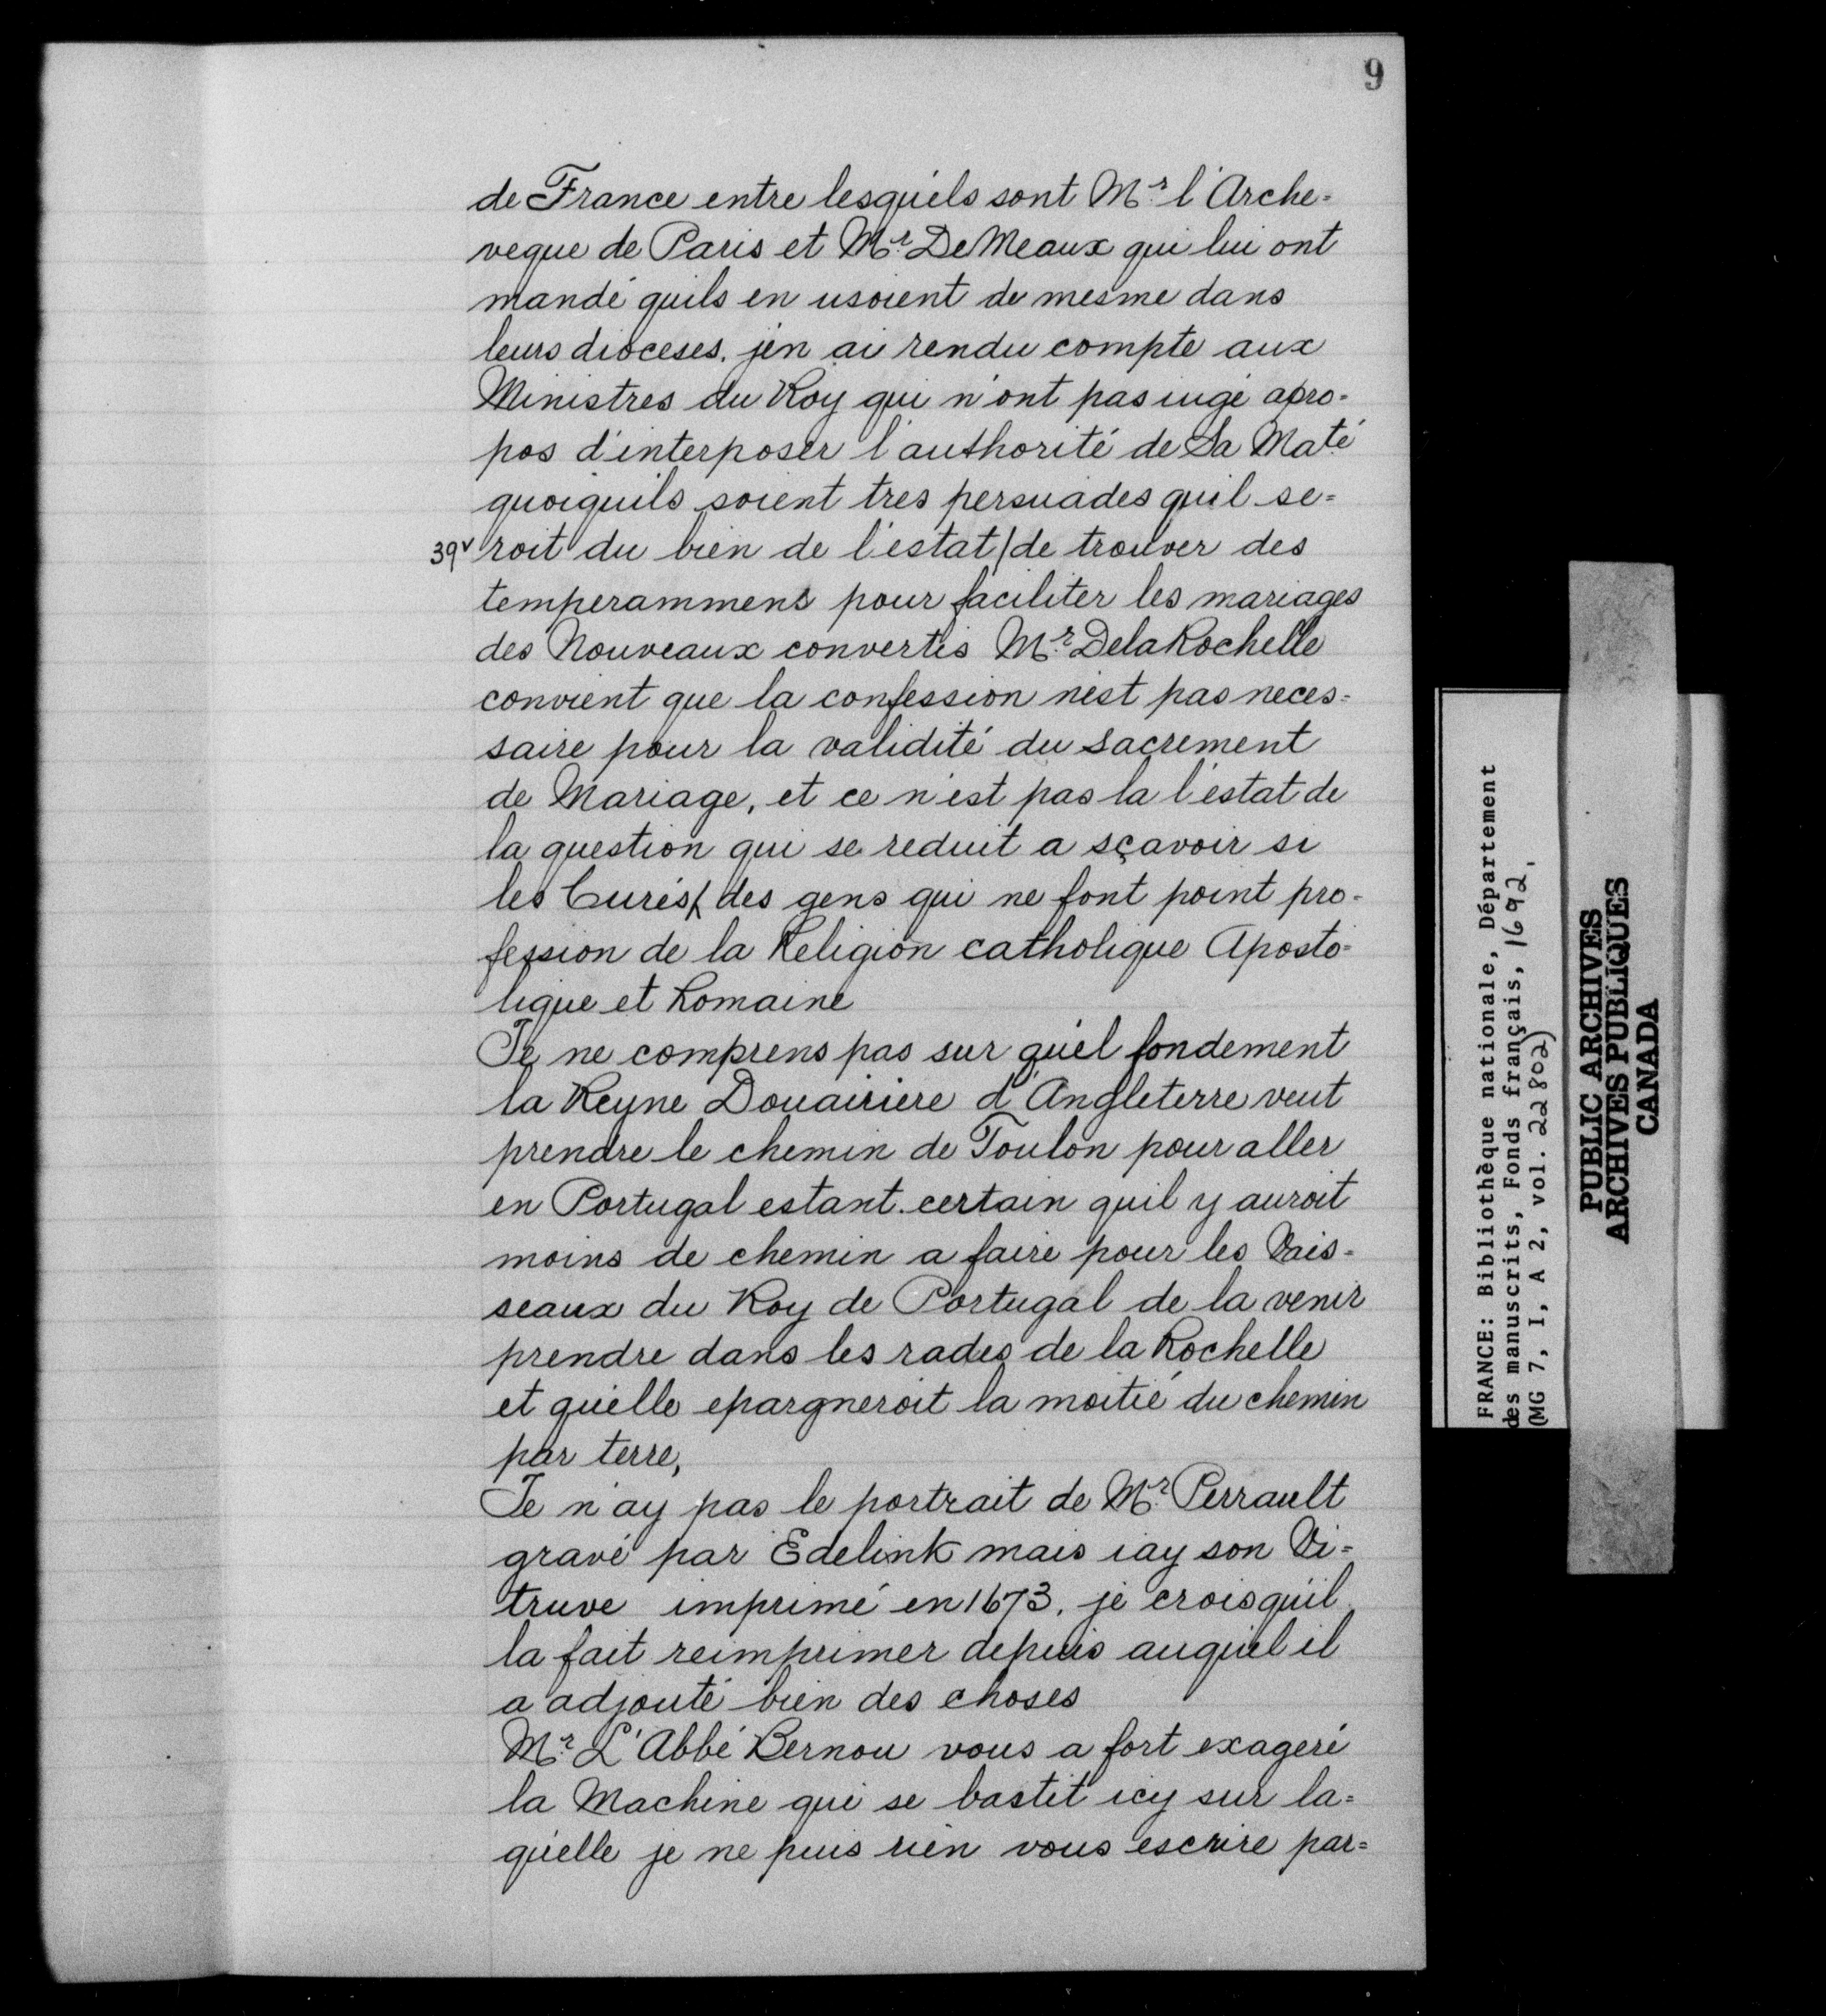 9
de France entre lesquels sont Mr. l'Arche=
veque de Paris et Mr. De Meaux qui lui ont
mandé quils en usoient de mesme dans
leurs dioceses. j'en ai rendu compte aux
Ministres du Roy qui n'ont pas iugé apro-
pos d'interposer l'authorité de Sa Maté
quoiquils soient tres persuades quil se=
39v roit du bien de l'estat/de trouver des
temperamment pour faciliter les mariages
des Nouveaux convertis Mr. Dela Rochelle
convient que la confession n'est pas neces=
saire pour la validité du sacrement
de Mariage, et ce n'est pas la l'estat de
la question qui se reduit a sçavoir si
les Curés des gens qui ne font point pro-
fession de la Religion catholique Aposto=
lique et Romaine
Je ne comprens pas sur quel fondement
la Reyne Douairiere d'Angleterre veut
prendre le chemin de Toulon pour aller
en Portugal estant certain quil y auroit
moins de chemin a faire pour les Vais=
seaux du Roy de Portugal de la venir
prendre dans les rades de la Rochelle
et qu'elle epargneroit la moitié du chemin
par terre,
Je n'ay pas le portrait de Mr. Perrault
gravé par Edelink mais iay son Vi=
truve imprimé en 1673. je crois qu'il
la fait reimprimer depuis auquel il
a adjouté bien des choses
Mr. L'Abbé Bernou vous a fort exageré
la Machine qui se bastit icy sur la=
quelle je ne puis rien vous escrire par=
FRANCE: Bibliothèque nationale, Département
des manuscrits, Fonds français, 1692.
(MG 7, I, A 2, vol. 22802)
PUBLIC ARCHIVES
ARCHIVES PUBLIQUES
CANADA